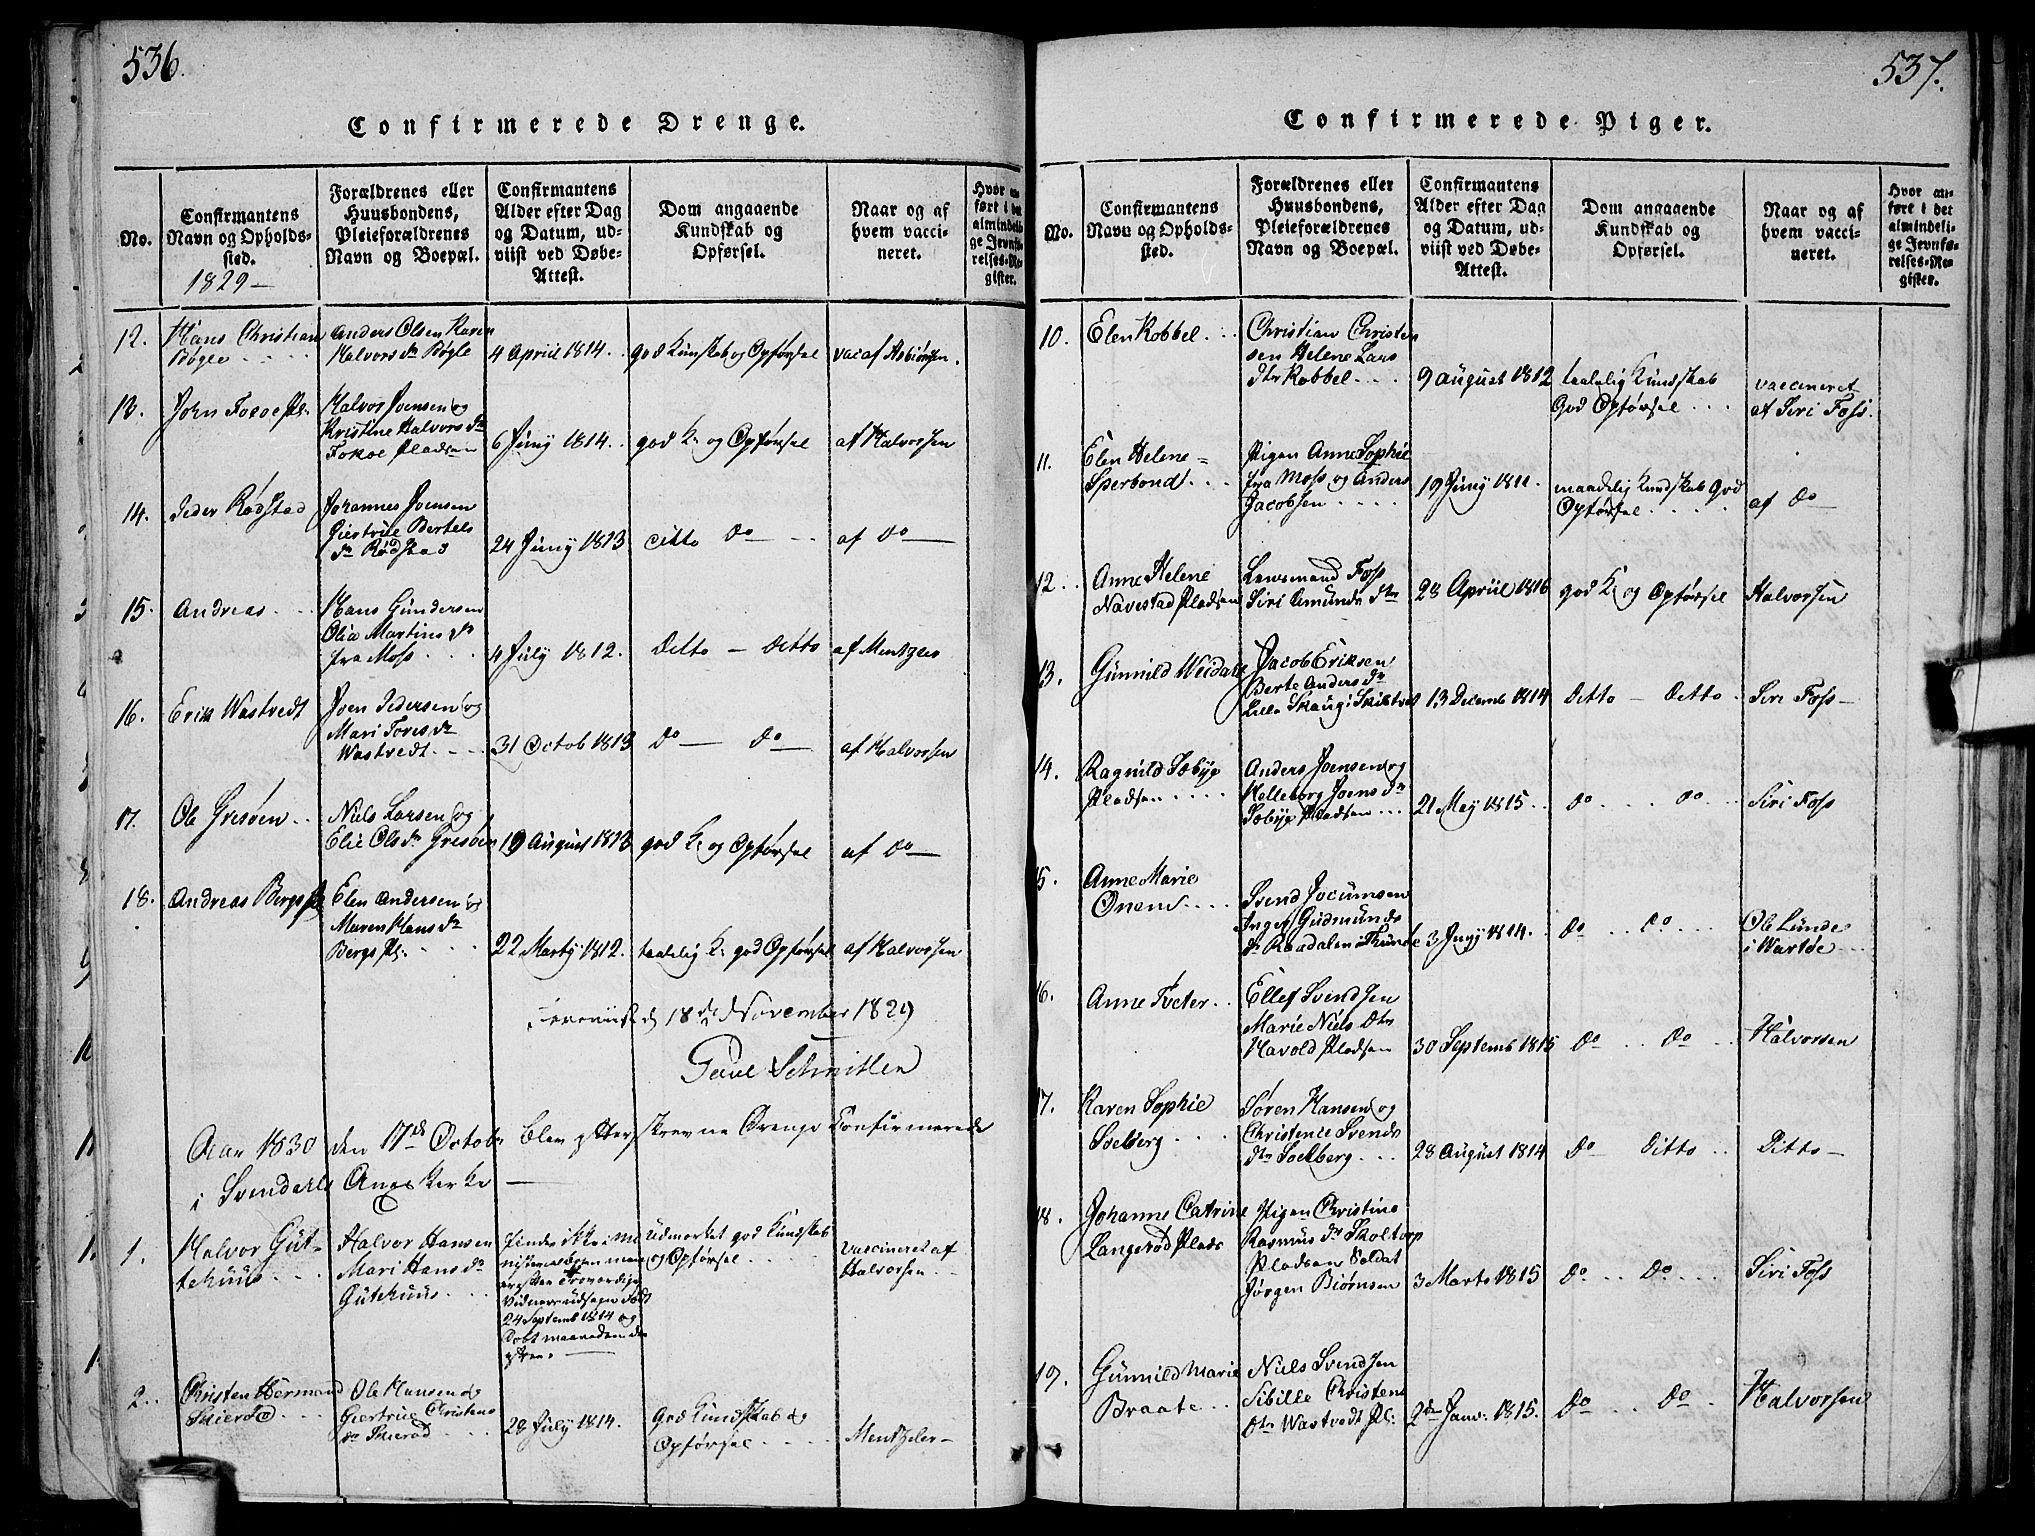 536.
Confirmerede Drenge.
No.
Confirmantens
Navn og Opholds-
sted.
1829 —
Forældrenes eller
Huusbondens,
Pleieforældrenes
Navn og Boepæl.
Confirmantens
Alder efter Dag
og Datum, ud-
viist ved Døbe-
Attest.
Dom angaaende
Kundskab og
Opførsel.
Naar og af
hvem vacci-
neret.
Hvor an-
ført i det
almindeli-
ge Jevnfø-
relses-Re-
gister.
12. Hans Christian
Bøgle
Anders Olsen Karen
Halvors dr Bøgle
4 Apriil 1814.
god Kundskab og Opførsel
vac af Asbiørnsen.
13. John Foxoe Pl:
Halvor Joensen og
Kristine Halvors dr
Foxoe Pladsen
6 Juny 1814.
god K: og Opførsel
af Halvorsen
14. Peder Rødstad
Johannes Joensen
Giertrue Bertels
dr Rødstad
24 Juny 1813
ditto Do
af Do
15. Andreas
Hans Gundersen
Olia Martins dr
fra Moss
4 July 1812.
Ditto — Ditto
af Mentzler
16. Erik Wastvedt
Joen Pedersen og
Mari Tores dr
Wastvedt.
31 Octob 1813
Do — Do
af Halvorsen
17. Ole Gresøen
Niels Larsen og
Elie Ols dr Gresøen
19 August 1813
god K: og Opførsel
af Do
18. Andreas Bergs Pl
Elen Andersen og
Maren Hans dr
Bergs Pl:
22 Marty 1812.
taalelig K: god Opførsel
af Halvorsen
18de November 1829
Paul Schnitler
Aar 1830 den 17de Octob: blev efterskrevne Drenge Confirmerede
i Svendahls Anex Kerke —
1. Halvor Gut-
tehuus
Halvor Hansen
Mari Hans dr
Gutehuus.
findes ikke i Mi
nisterialbogen men
efter troværdige
Vidners udsagn født
24 Septemb 1814 og
Døbt maaneden der
efter.
udmerket god Kundskab
og Opførsel
vaccineret af
Halvorsen
2. Christen Herman
Skierød
Ole Hansen og
Giertrue Christens
dr Skierød
28 July 1814.
God Kundskab og
Opførsel
Mentzler —
537.
Confirmerede Piger.
No.
Confirmantens
Navn og Opholds-
sted.
Forældrenes eller
Huusbondens,
Pleieforældrenes
Navn og Boepæl.
Confirmantens
Alder efter Dag
og Datum, ud-
viist ved Døbe-
Attest.
Dom angaaende
Kundskab og
Opførsel.
Naar og af
hvem vacci-
neret.
Hvor an-
ført i det
almindeli-
ge Jevnfø-
relses-Re-
gister.
10. Elen Kobbel
Christian Christen
sen Helene Lars
dtr Kobbel
9 August 1812
taalelig Kundskab
God Opførsel
vaccineret
af Siri Foss.
11. Elen Helene
Sperbond
Pigen Anne Sophie
fra Moss og Anders
Jacobsen
19 Juny 1811.
maadelig Kundskab God
Opførsel
af Do
12. Anne Helene
Navestad Pladsen
Lensmand Foss
Siri Amunds dtr
28 Apriil 1816
god K: og Opførsel
Halvorsen
13. Gunnild Weidale
Jacob Eriksen
Berte Anders dr
Lille Skaug i Skibtvet
13 Decemb 1814
Ditto — Ditto
Siri Foss —
14. Ragnild Sæbye
Pladsen
Anders Joensen og
Helleborg Joens dr
Sæbye Pladsen
21 May 1815
do do
Siri Foss
15. Anne Marie
Onen
Svend Jocumsen
Inger Gudmunds
dr Raadalen i Thune
3 Juny 1814.
Do Do
Ole Lunde
i Wartøe
16. Anne Tveter
Ellef Svendsen
Marie Niels Dtr
Havold Pladsen
30 Septemb 1815
Do Do
Halvorsen
17. Karen Sophie
Soelberg
Søren Hansen og
Christence Svends
dtr Soelberg
28 August 1814
Do Ditto
Ditto —
18. Johanne Catrine
Langerød Plads
Pigen Christine
Rasmus dr Skoltorp
Pladsen Soldat
Jørgen Biørnsen
3 Marts 1815
Do Do
Siri Foss
19. Gunnild Marie
Braate
Niels Svendsen
Sibille Christens
Dtr Wastvedt Pl:
2den Janv: 1815.
Do Do
Halvorsen